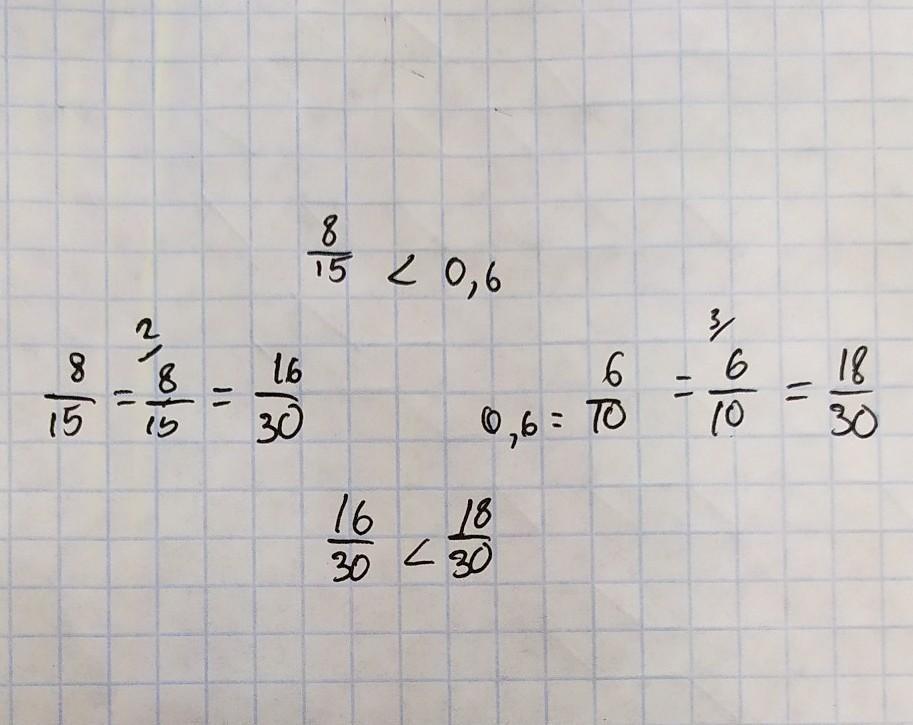 8/15 < 0,6
8/15 = 2/ 8/15 = 16/30
0,6 = 6/10 = 3/ 6/10 = 18/30
16/30 < 18/30